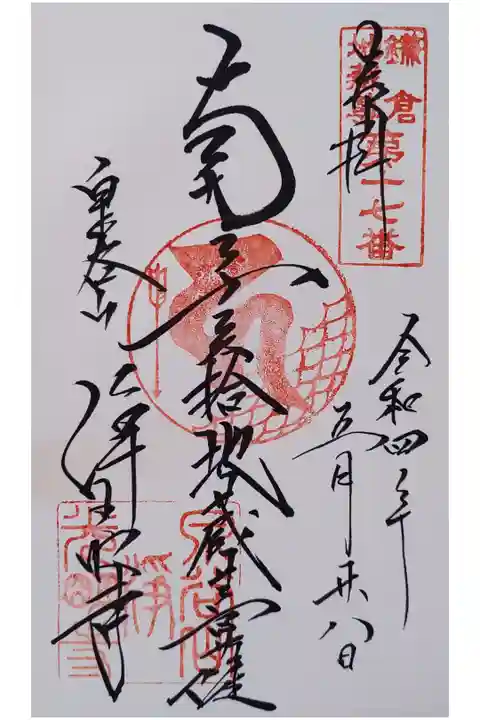 鎌倉
地蔵尊
第一七番
奉拝
令和四年
五月廿八日
南無矢拾地蔵菩薩
泉谷山
浄光明寺